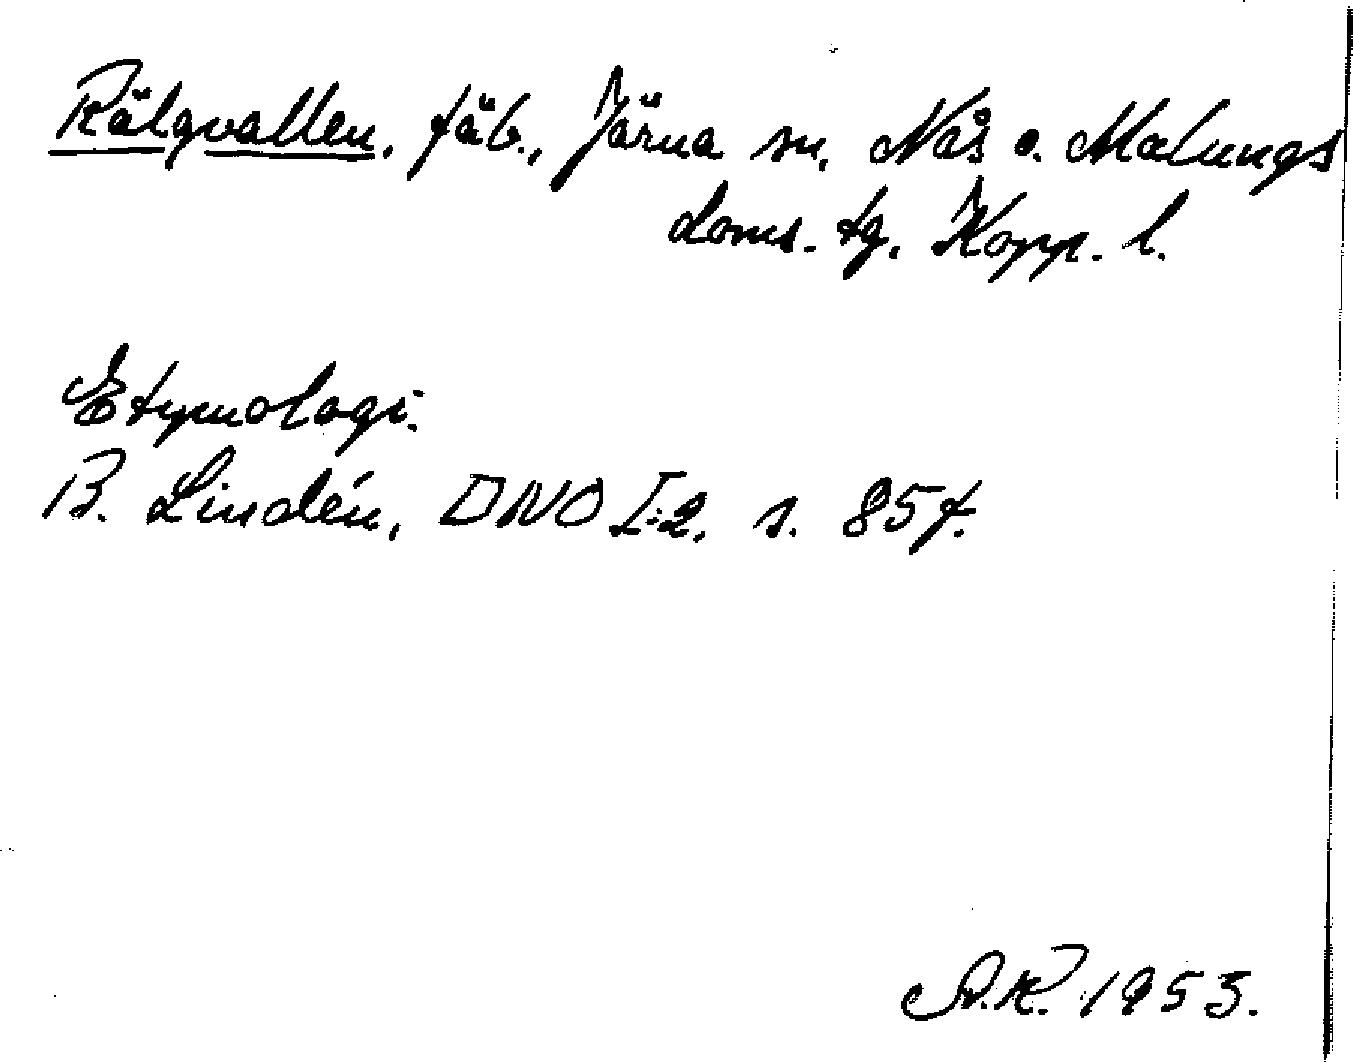 Rälgvallen, fäb., Järna sn, Nås o. Malungs
doms. tg. Kopp. l.
Etymologi.
B. Lindén, DNO I:2. s. 85f.
1953.